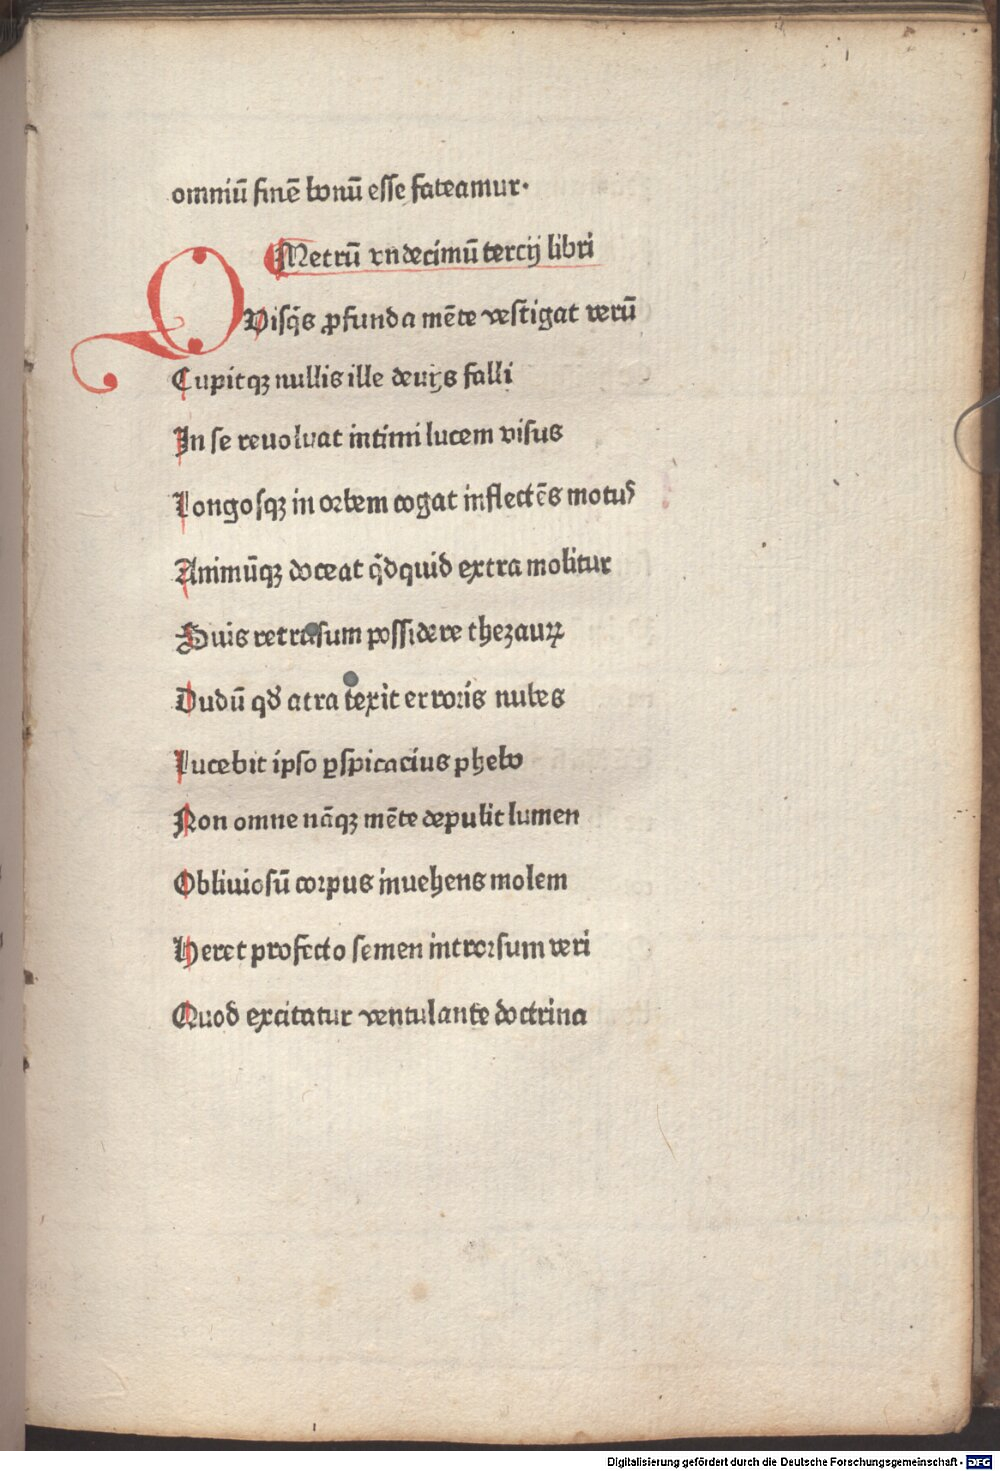 omniū finē bonū esse fateamur·
Metrū vndecimū tercij libri
QVisq̄s ꝓfunda mēte vestigat verū
Cupitqꝫ nullis ille deuijs falli
In se reuoluat intimi lucem visus
Longosqꝫ in orbem cogat inflectēs motus
Animūqꝫ doceat qͥdquid extra molitur
Suis retrusum possidere thezauꝝ
Dudū qd' atra texit erroris nubes
Lucebit ipso ꝑspicacius phebo
Non omne nāqꝫ mēte depulit lumen
Obliuiosū corpus inuehens molem
Heret profecto semen introrsum veri
Quod excitatur ventulante doctrina
Digitalisierung gefördert durch die Deutsche Forschungsgemeinschaft - DFG